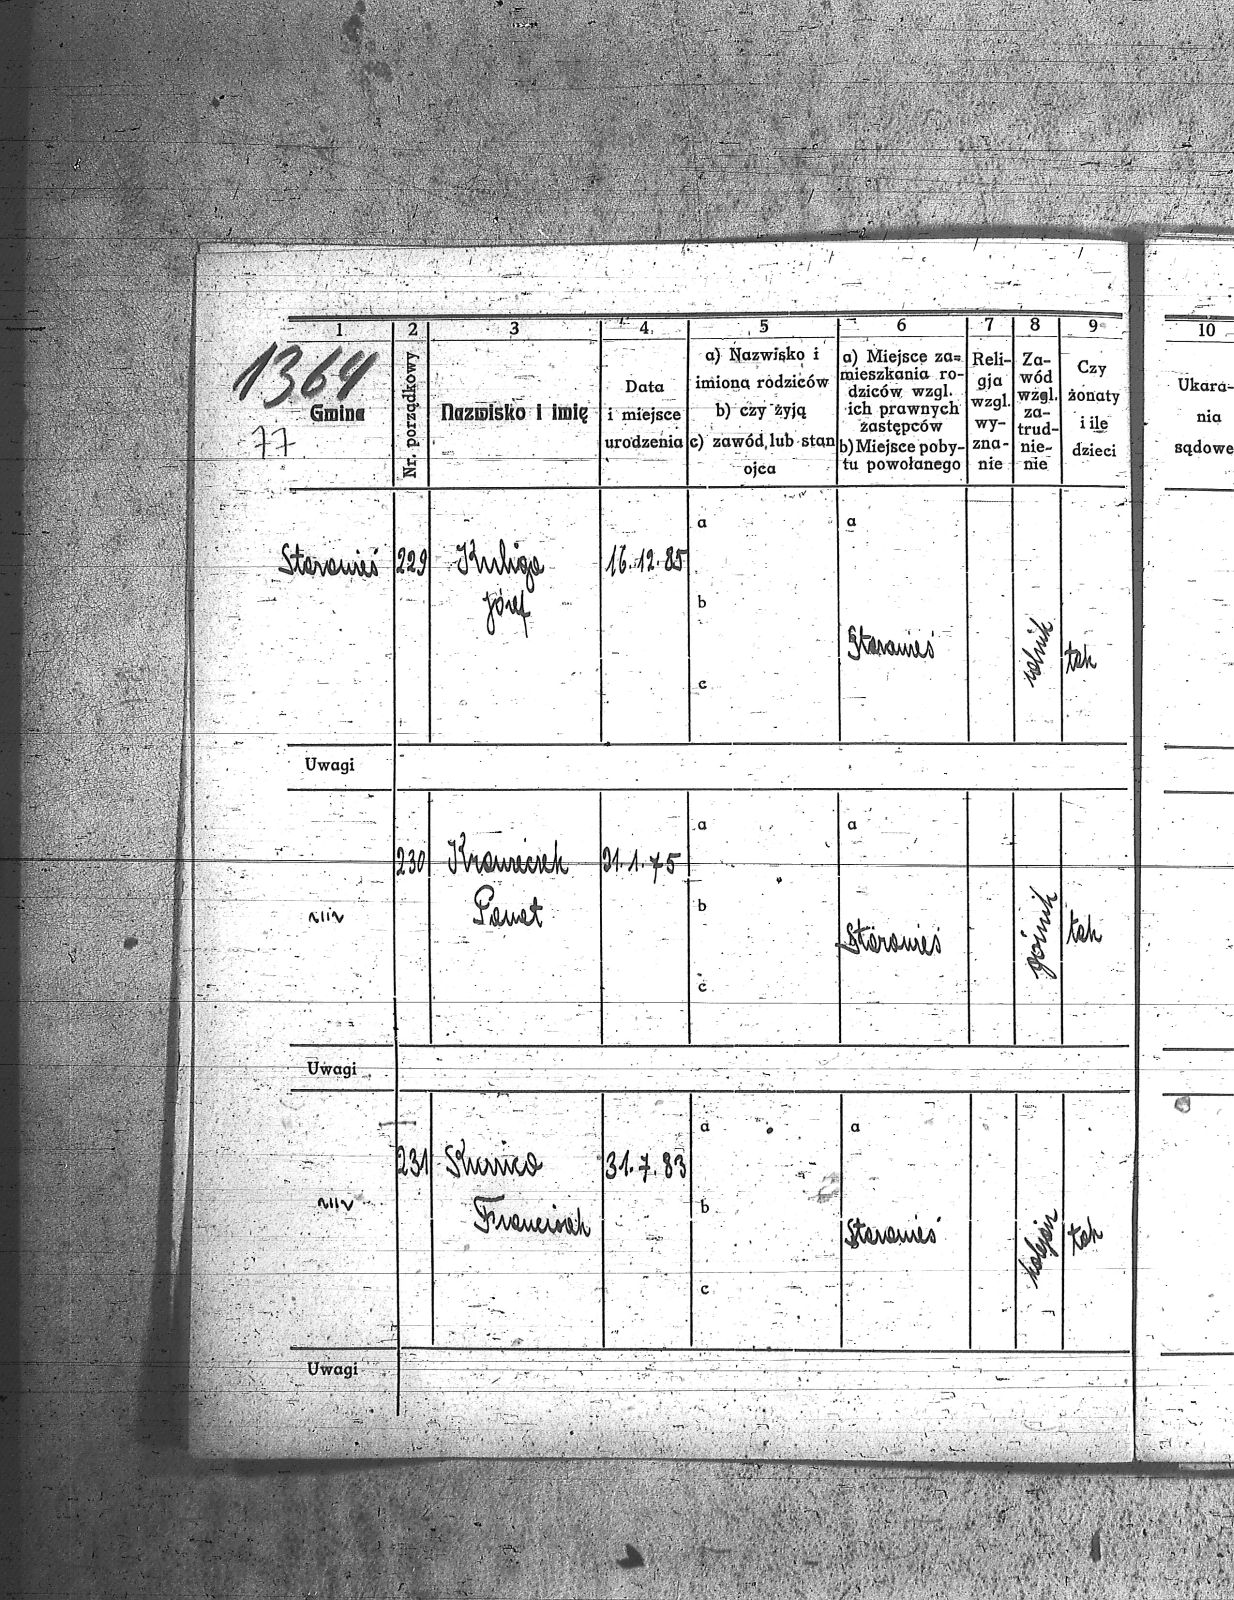 1 2 3 4 5 6 7 8 9 10
1364
77
Gmina
Nr. porządkowy
Nazwisko i imię
Data
i miejsce
urodzenia
a) Nazwisko i
imiona rodziców
b) czy żyją
c) zawód lub stan
ojca
a) Miejsce za-
mieszkania ro-
dziców wzgl.
ich prawnych
zastępców
b) Miejsce poby-
tu powołanego
Reli-
gja
wzgl.
wy-
zna-
nie
Za-
wód
wzgl.
za-
trud-
nie-
nie
Czy
żonaty
i ile
dzieci
Ukara-
nia
sądowe
Starawieś 229 Kuliga 16.12.85
Józef
a
b
c
a
Starawieś
rolnik
tak
Uwagi
230 Krawieczek 31.1.75
a
b
c
a
Starawieś
górnik
tak
Uwagi
231 31.7.83
Franciszek
a
b
c
a
Starawieś
kolejarz
tak
Uwagi